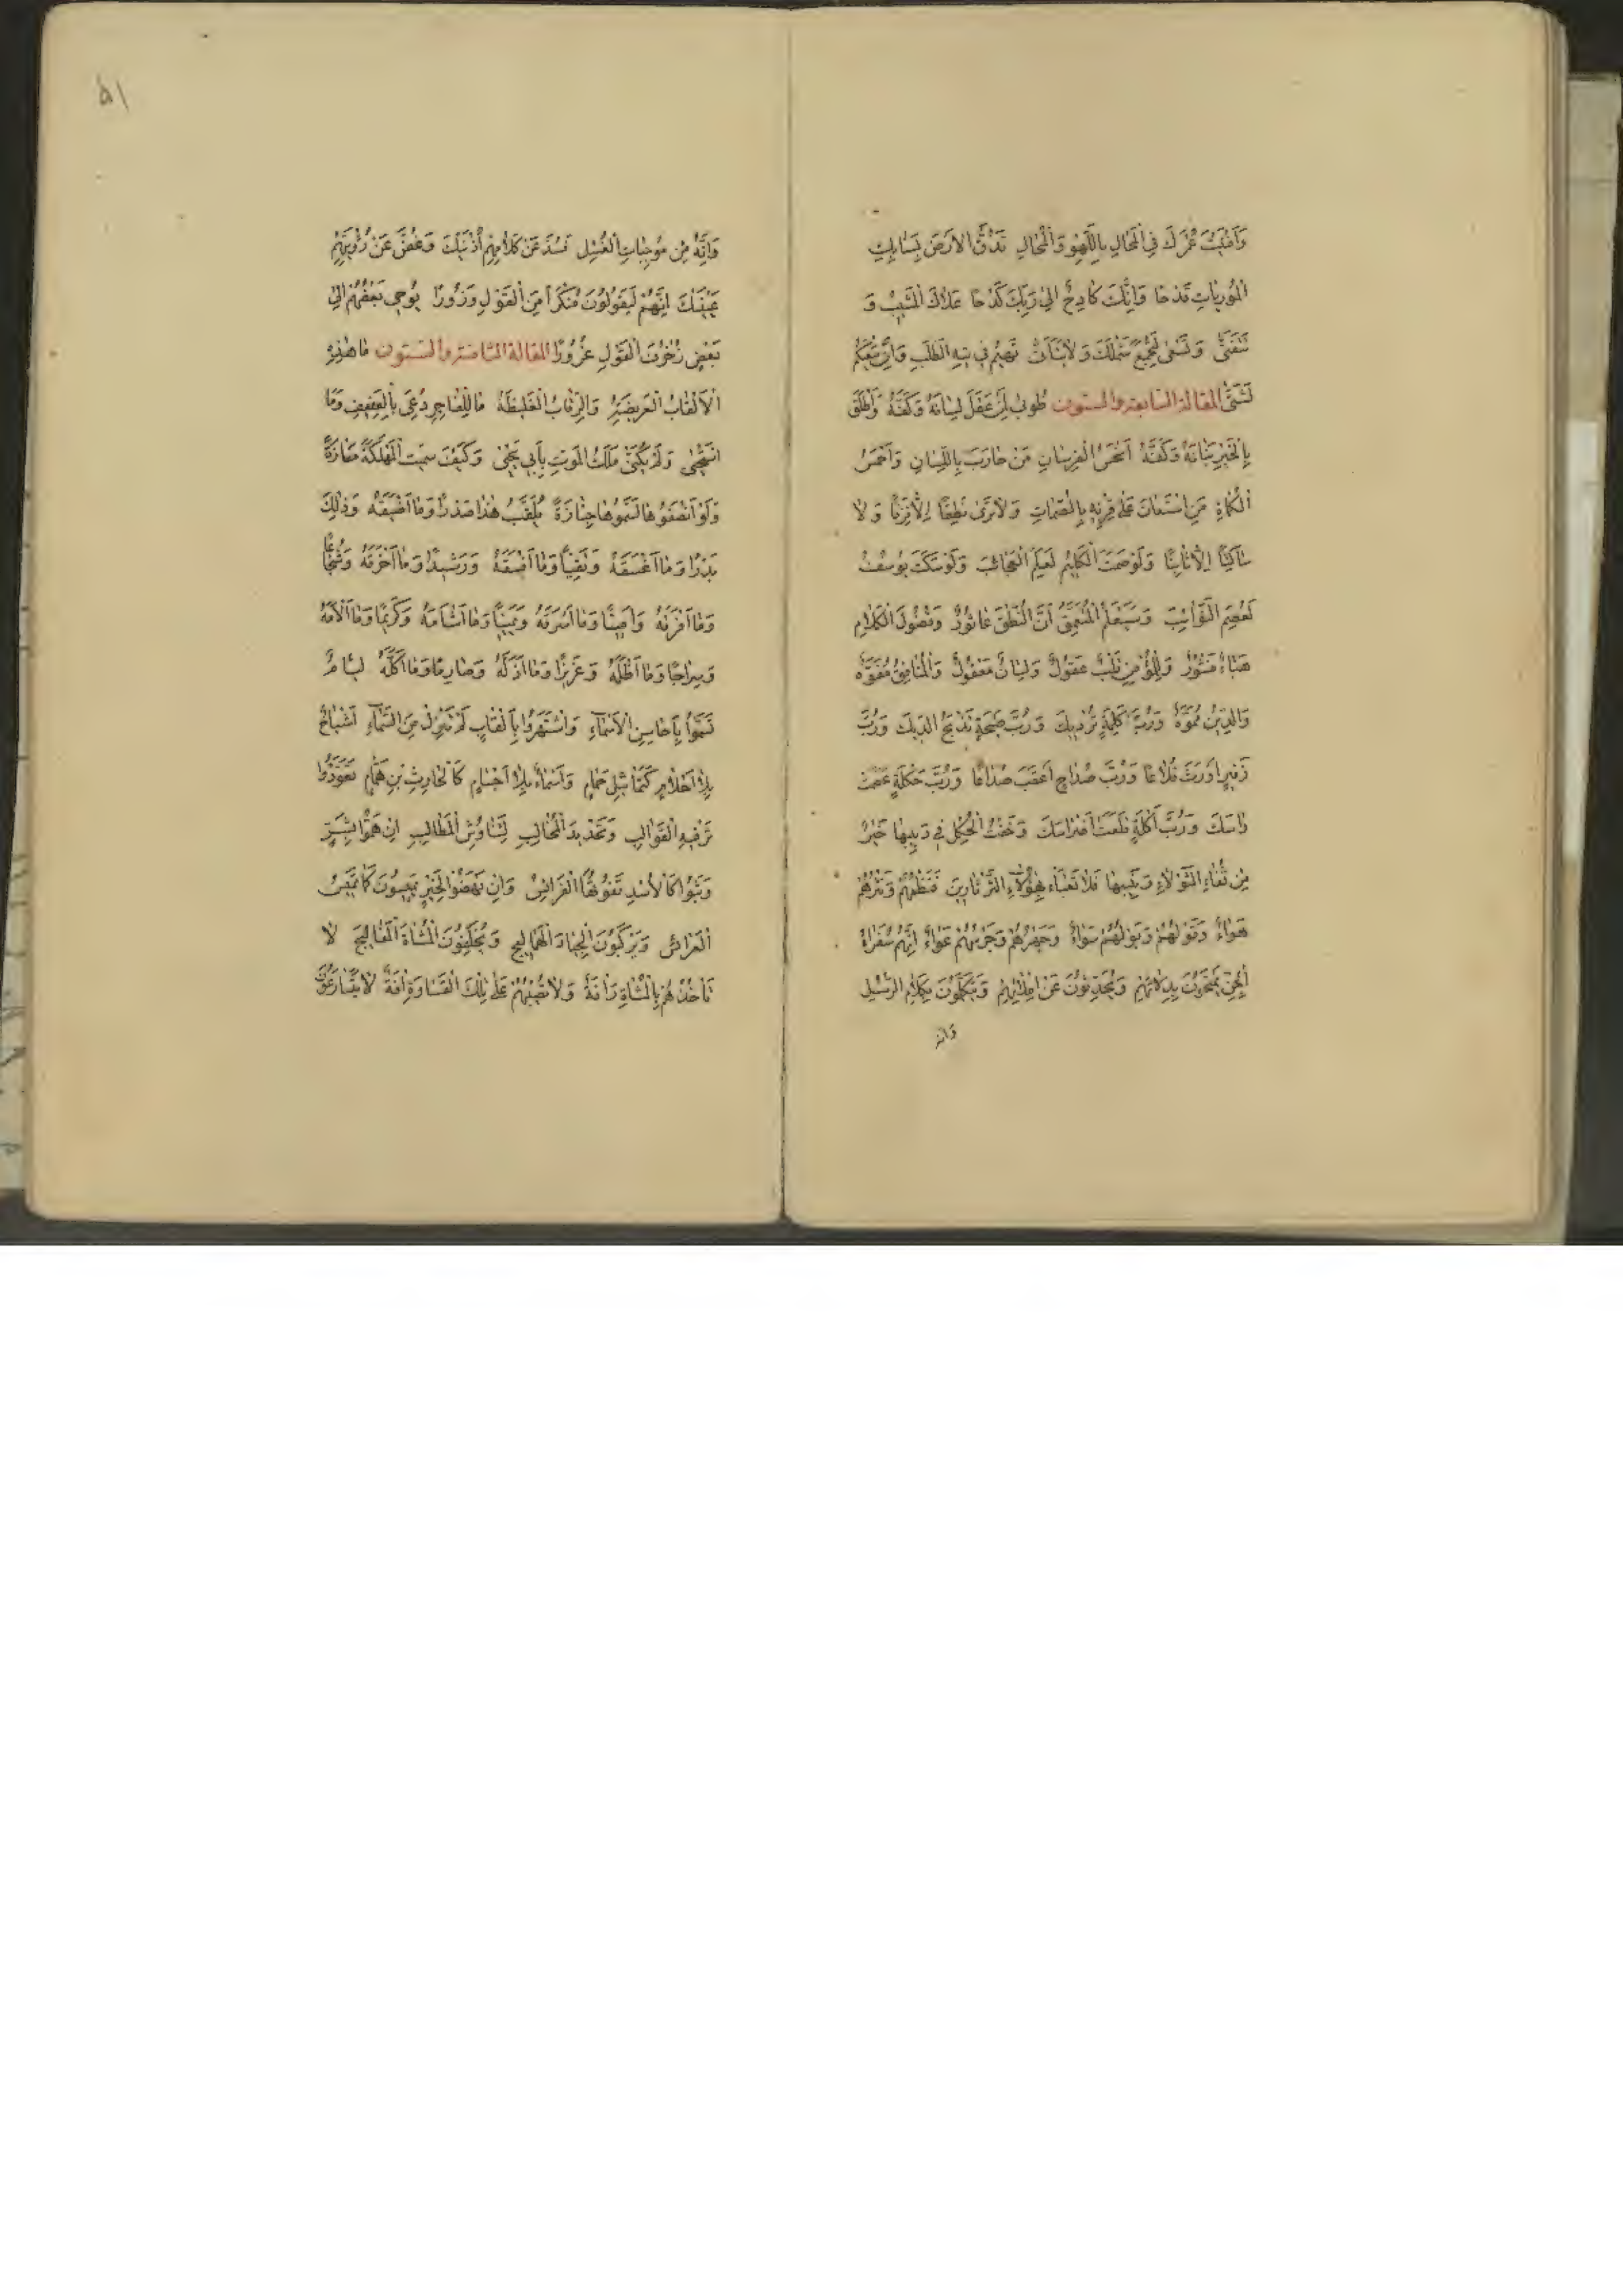 وَأَفْنَيْتَ عُمْرَكَ فِي الْمَحَالِ بِاللَّهْوِ وَالْمُحَالِ تَدُقُّ الْأَرْضَ بِسَنَابِكِ
الْمُورِيَاتِ قَدْحًا وَإِنَّكَ كَادِحٌ إِلَى رَبِّكَ كَدْحًا عَلَاكَ الْمَشِيبُ وَ
تَسْعَى لِجَمْعِ شَمْلِكَ وَلَا تَهِيمُ فِي تِيهِ الطَّلَبِ وَإِنَّ سَعْيَكُمْ
لَشَتَّى المقالة السابعة والستون طُوبَى لِمَنْ عَقَلَ لِسَانَهُ وَكَفَّهُ وَأَطْلَقَ
بِالْخَيْرِ بَنَانَهُ وَكَفَّهُ أَخَسُّ الْفُرْسَانِ مَنْ حَارَبَ بِاللِّسَانِ وَأَحْمَسُ
الْكُمَاةِ مَنِ اسْتَعَانَ عَلَى قِرْنِهِ بِالصُّمَاتِ وَلَا تَرَى نَطِقًا إِلَّا وَلَا
سَاكِتًا إِلَّا وَلَوْ صَمَتَ الْكَلِيمُ لَعَلِمَ الْعَجَائِبَ وَلَوْ سَكَتَ يُوسُفُ
لَعُصِمَ النَّوَائِبَ وَسَيَعْلَمُ الْمُتَعَمِّقُ أَنَّ النُّطْقَ عَاثُورٌ وَفُضُولَ الْكَلَامِ
هَبَاءٌ مَنْثُورٌ وَلِلْمُؤْمِنِ قَلْبٌ عَقُولٌ وَلِسَانٌ مَعْقُولٌ وَالْمُنَافِقُ مُفَوَّهٌ
وَالدِّينُ مُمَوَّهٌ وَرُبَّ كَلِمَةٍ تُرْدِيكَ وَرُبَّ صَيْحَةٍ تَذْبَحُ الدِّيكَ وَرُبَّ
زَفِيرٍ أَوْرَثَ قُلَاعًا وَرُبَّ صُدَاحٍ أَعْقَبَ صُدَاعًا وَرُبَّ حَنْكَلَةٍ عَضَّتْ
رَاسَكَ وَرُبَّ أَكْلَةٍ قَطَعَتْ أَضْرَاسَكَ وَنَحْتُ الْحُكْلِ فِي دَبِيبِهَا خَيْرٌ
مِنْ ثُغَاءِ الثَّوْلَاءِ وَنَبِيبِهَا فَلَا تَعْبَأْ بِهَؤُلَاءِ الثَّرْثَارِينَ فَنَظْمُهُمْ وَنَثْرُهُمْ
هَوَاءٌ وَقَوْلُهُمْ وَبَوْلُهُمْ سَوَاءٌ وَجَهْرُهُمْ وَجَرْسُهُمْ عَوَاءٌ إِنَّهُمْ سُفَرَاءُ
الْجِنِّ يَمْتَحُونَ بِدِلَائِهِمْ وَيُحَدِّثُونَ عَنْ إِمْلَائِهِمْ وَيَتَكَلَّمُونَ بِكَلَامِ الرُّسُلِ
وانه
٥١
وَإِنَّهُ مِنْ مُوجِبَاتِ الْغُسْلِ فَسُدَّ عَنْ كَلَامِهِمْ أُذْنَيْكَ وَغُضَّ عَنْ رُؤْيَتِهِمْ
عَيْنَيْكَ إِنَّهُمْ لَيَقُولُونَ مُنْكَرًا مِنَ الْقَوْلِ وَزُورًا يُوحِي بَعْضُهُمْ إِلَى
بَعْضٍ زُخْرُفَ الْقَوْلِ غُرُورًا المقالة الثامنة والستون مَا هَذِهِ
الْأَلْقَابُ الْعَرِيضَةُ وَالرِّقَابُ الْغَلِيظَةُ مَا لِلْفَاجِرِ دُعِيَ بِالْعَفِيفِ وَمَا
اسْتَحْيَى وَلَمْ يُكَنَّ مَلَكُ الْمَوْتِ بِأَبِي يَحْيَى وَكَيْفَ سُمِّيَتِ الْمَهْلَكَةُ مَفَازَةً
وَلَوْ أَنْصَفُوهَا لَسَمَّوْهَا جِنَازَةً يُلَقَّبُ هَذَا صَدْرًا وَمَا أَضْيَقَهُ وَذَلِكَ
بَدْرًا وَمَا أَغْسَقَهُ وَتَقِيًّا وَمَا أَفْسَقَهُ وَرَشِيدًا وَمَا أَخْرَقَهُ وَشُجَاعًا
وَمَا أَفْرَقَهُ وَأَمِينًا وَمَا أَسْرَقَهُ وَيَمِينًا وَمَا أَشْأَمَهُ وَكَرِيمًا وَمَا أَلْأَمَهُ
وَسِرَاجًا وَمَا أَظْلَمَهُ وَعَزِيزًا وَمَا أَذَلَّهُ وَصَارِمًا وَمَا أَكَلَّهُ لِئَامٌ
تَسَمَّوْا بِأَحَاسِنِ الْأَسْمَاءِ وَاشْتَهَرُوا بِأَلْقَابٍ لَمْ تَنْزِلْ مِنَ السَّمَاءِ أَشْبَاحٌ
بِلَا أَحْلَامٍ كَتَمَاثِيلِ حَمَّامٍ وَأَسْمَاءٌ بِلَا أَجْسَامٍ كَالْحَارِثِ بْنِ هَمَّامٍ تَعَوَّدُوا
تَرْفِيهَ الْقَوَالِبِ وَتَحْدِيدَ الْمَخَالِبِ لِتَنَاوُشِ الْمَطَالِبِ إِنْ هَمُّوا بِشَرٍّ
وَثَبُوا كَالْأُسْدِ تَفُوتُهَا الْفَرَائِسُ وَإِنْ نَهَضُوا لِخَيْرٍ يَمِيسُونَ كَمَا تَمِيسُ
الْعَرَائِسُ وَيَرْكَبُونَ الْجِيَادَ الْهَمَالِيجَ وَيُخَلِّفُونَ الْمُشَاةَ الْمَفَالِيجَ لَا
تَأْخُذُهُمْ بِالْمُشَاةِ رَأْفَةٌ وَلَا تُصِيبُهُمْ عَلَى تِلْكَ الْقَسَاوَةِ آفَةٌ لَا يَتَقَارَعُونَ